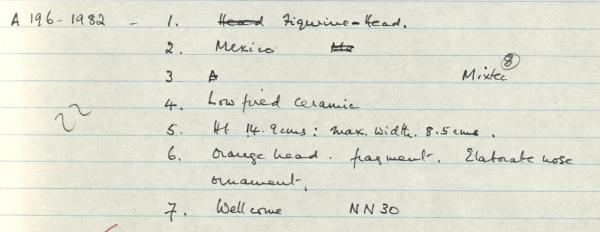 A 196-1982 - 1. Head Figurine-Head.
2. Mexico Ma
3 A Mixtec 8
4. Low fired ceramic
5. Ht 14.9cms: max. width. 8.5cms.
6. Orange head. fragment. Elaborate nose
ornament.
7. Wellcome NN30